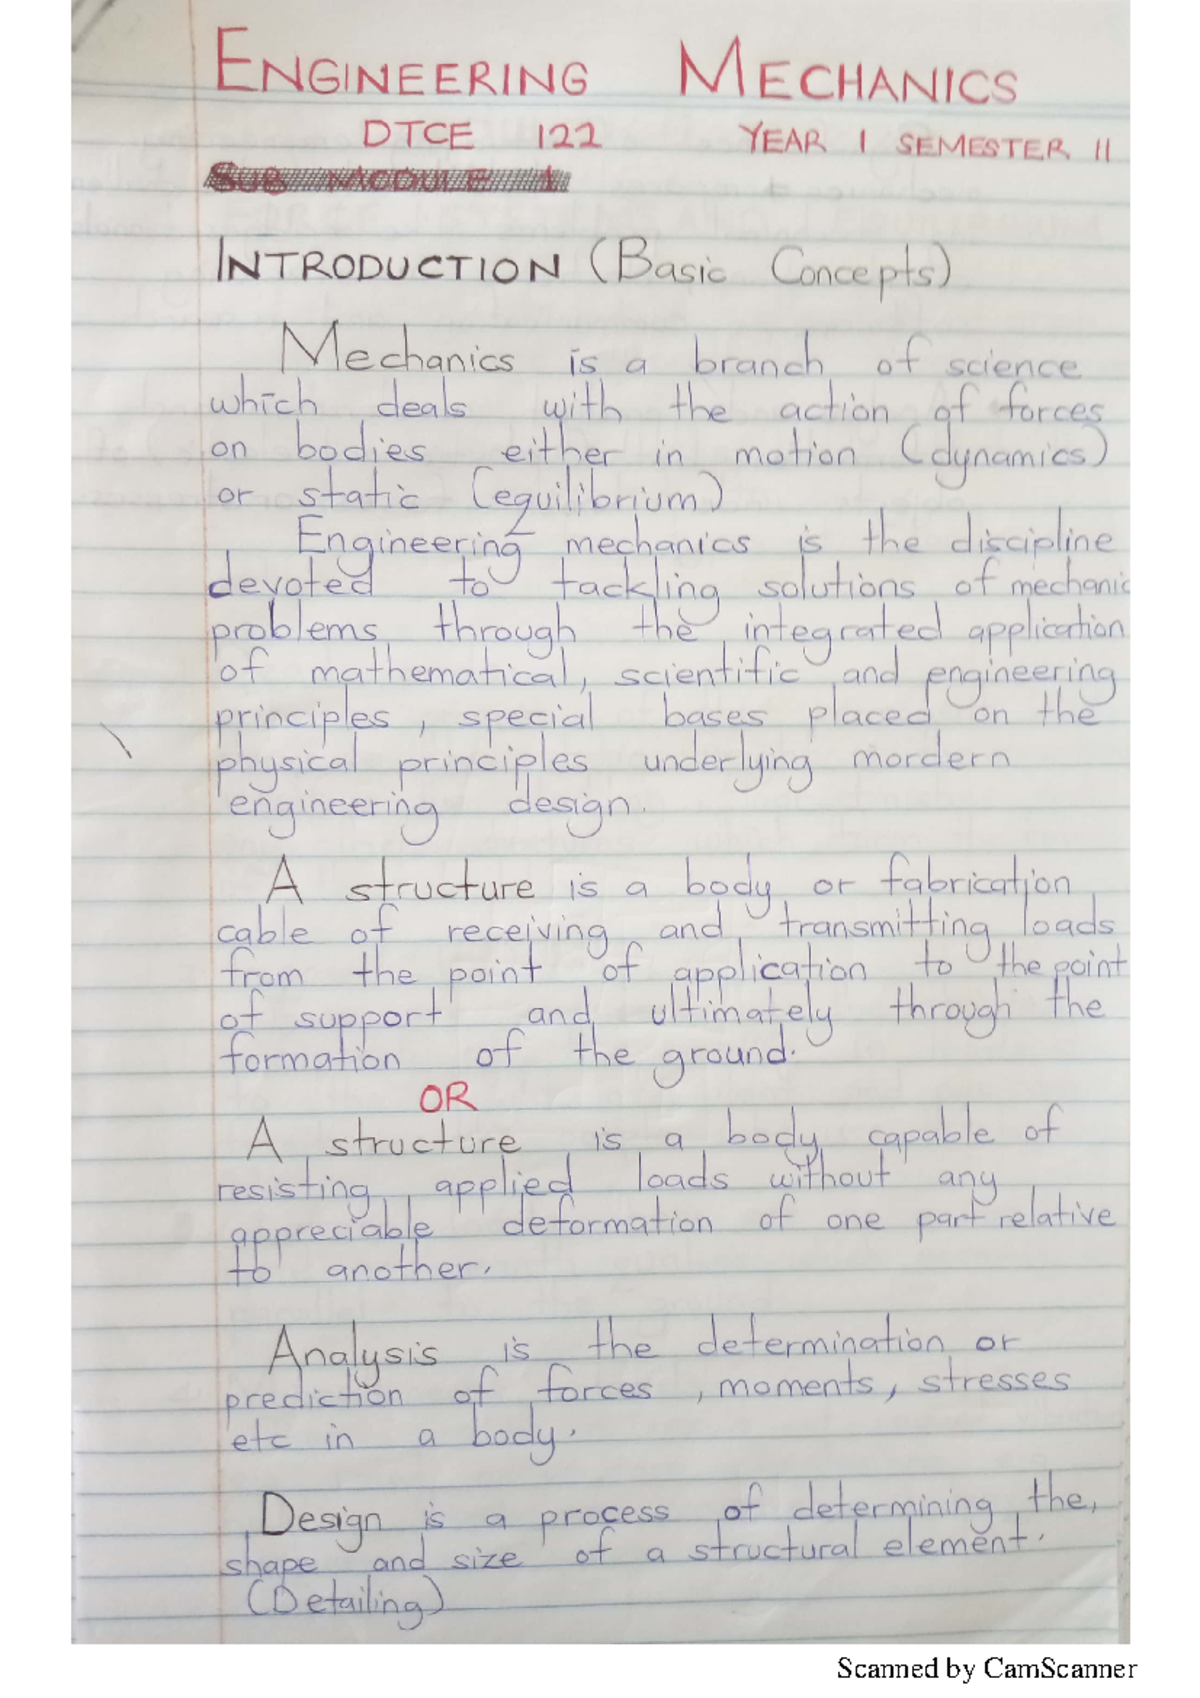 ENGINEERING MECHANICS
DTCE 122 YEAR 1 SEMESTER II
SUB MODULE 1
INTRODUCTION (Basic Concepts)
Mechanics is a branch of science
which deals with the action of forces
on bodies either in motion (dynamics)
or static (equilibrium)
Engineering mechanics is the discipline
devoted to tackling solutions of mechanic
problems through the integrated application
of mathematical, scientific and engineering
principles, special bases placed on the
physical principles underlying mordern
engineering design.
A structure is a body or fabrication
cable of receiving and transmitting loads
from the point of application to the point
of support and ultimately through the
formation of the ground.
OR
A structure is a body capable of
resisting applied loads without any
appreciable deformation of one part relative
to another.
Analysis is the determination or
prediction of forces, moments, stresses
etc in a body.
Design is a process of determining the,
shape and size of a structural element.
(Detailing)
Scanned by CamScanner